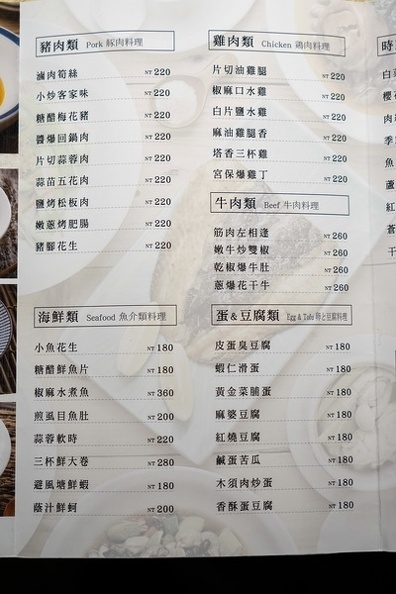 豬肉類 Pork 豚肉料理
滷肉筍絲 NT 220
小炒客家味 NT 220
糖醋梅花豬 NT 220
醬爆回鍋肉 NT 220
片切蒜蓉肉 NT 220
蒜苗五花肉 NT 220
鹽烤松板肉 NT 220
嫩蔥烤肥腸 NT 220
豬腳花生 NT 220
海鮮類 Seafood 魚介類料理
小魚花生 NT 180
糖醋鮮魚片 NT 180
椒麻水煮魚 NT 360
煎虱目魚肚 NT 200
蒜蓉軟時 NT 220
三杯鮮大卷 NT 280
避風塘鮮蝦 NT 180
蔭汁鮮蚵 NT 200
雞肉類 Chicken 鶏肉料理
片切油雞腿 NT 220
椒麻口水雞 NT 220
白片鹽水雞 NT 220
麻油雞腿香 NT 220
塔香三杯雞 NT 220
宮保爆雞丁 NT 220
牛肉類 Beef 牛肉料理
筋肉左相逢 NT 260
嫩牛炒雙椒 NT 260
乾椒爆牛肚 NT 260
蔥爆花干牛 NT 260
蛋&豆腐類 Egg & Tofu 卵と豆腐料理
皮蛋臭豆腐 NT 180
蝦仁滑蛋 NT 180
黃金菜脯蛋 NT 180
麻婆豆腐 NT 180
紅燒豆腐 NT 180
鹹蛋苦瓜 NT 180
木須肉炒蛋 NT 180
香酥蛋豆腐 NT 180
時
白
櫻
肉
季
魚
蘆
紅
蒼
干